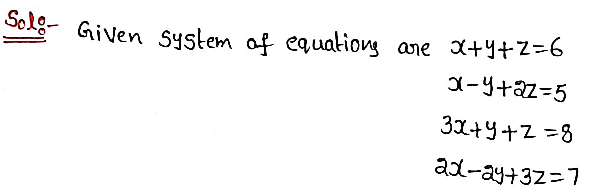 Sol:- Given system of equations are x+y+z=6
x-y+2z=5
3x+y+z=8
2x-2y+3z=7